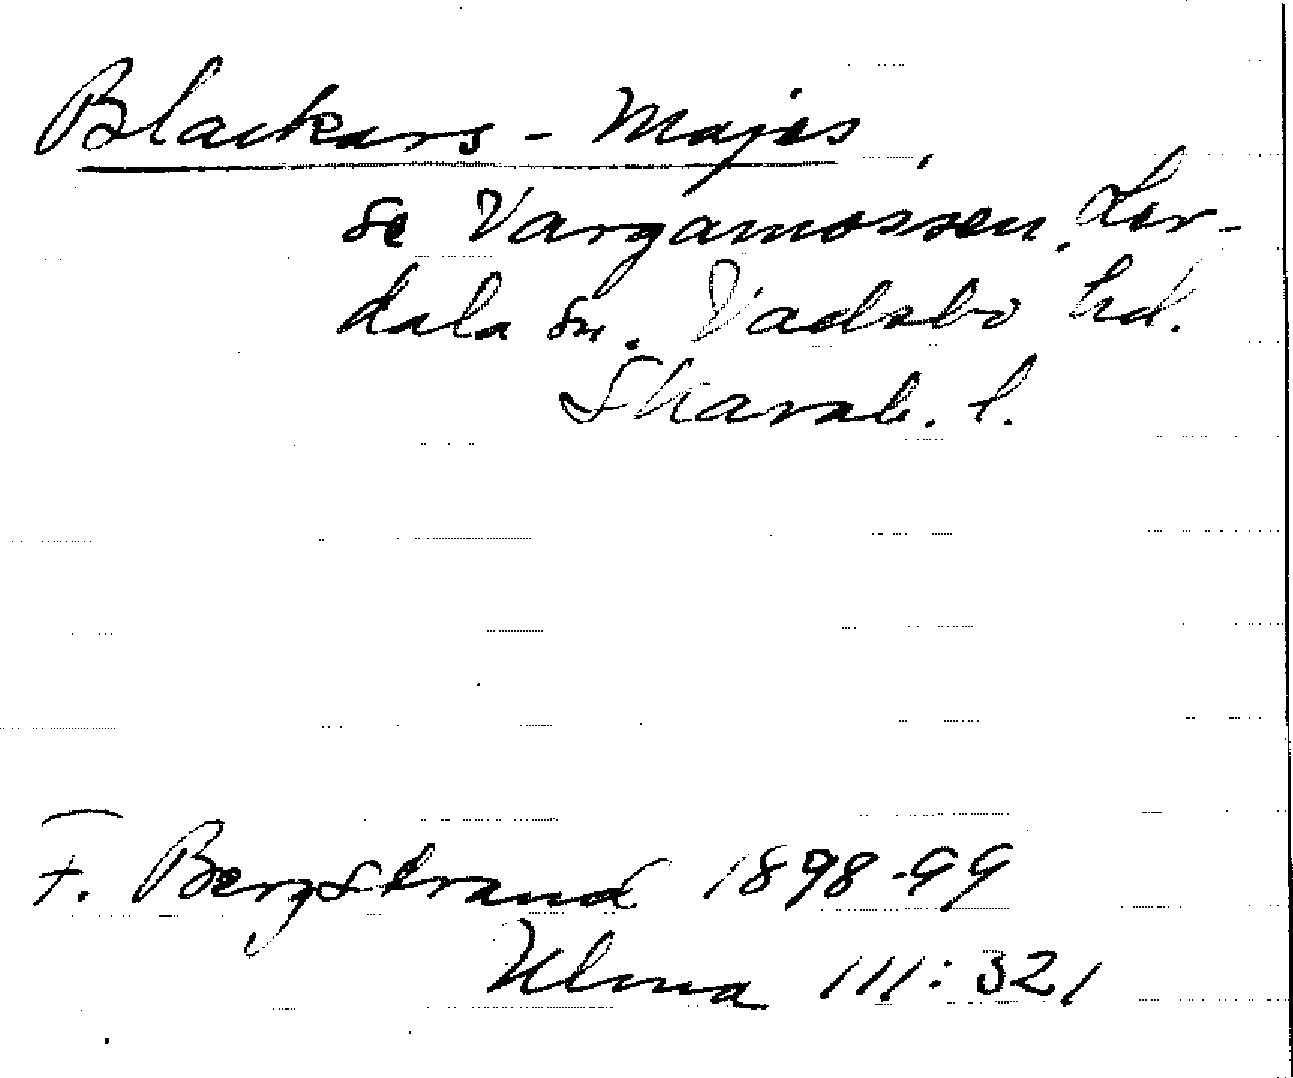 Blackars-Majas,
se Vargamossen, Ler-
dala sn. Vadsbo hd.
Skarab. l.
F. Bergstrand 1898-99
Ulma 111:321